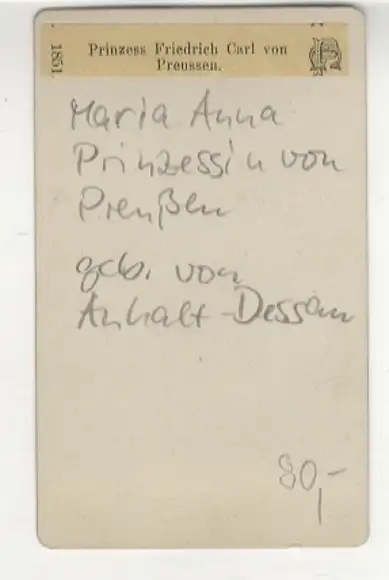 1851
Prinzess Friedrich Carl von
Preussen.
Maria Anna
Prinzessin von
Preußen
geb. von
Anhalt-Dessau
80,-